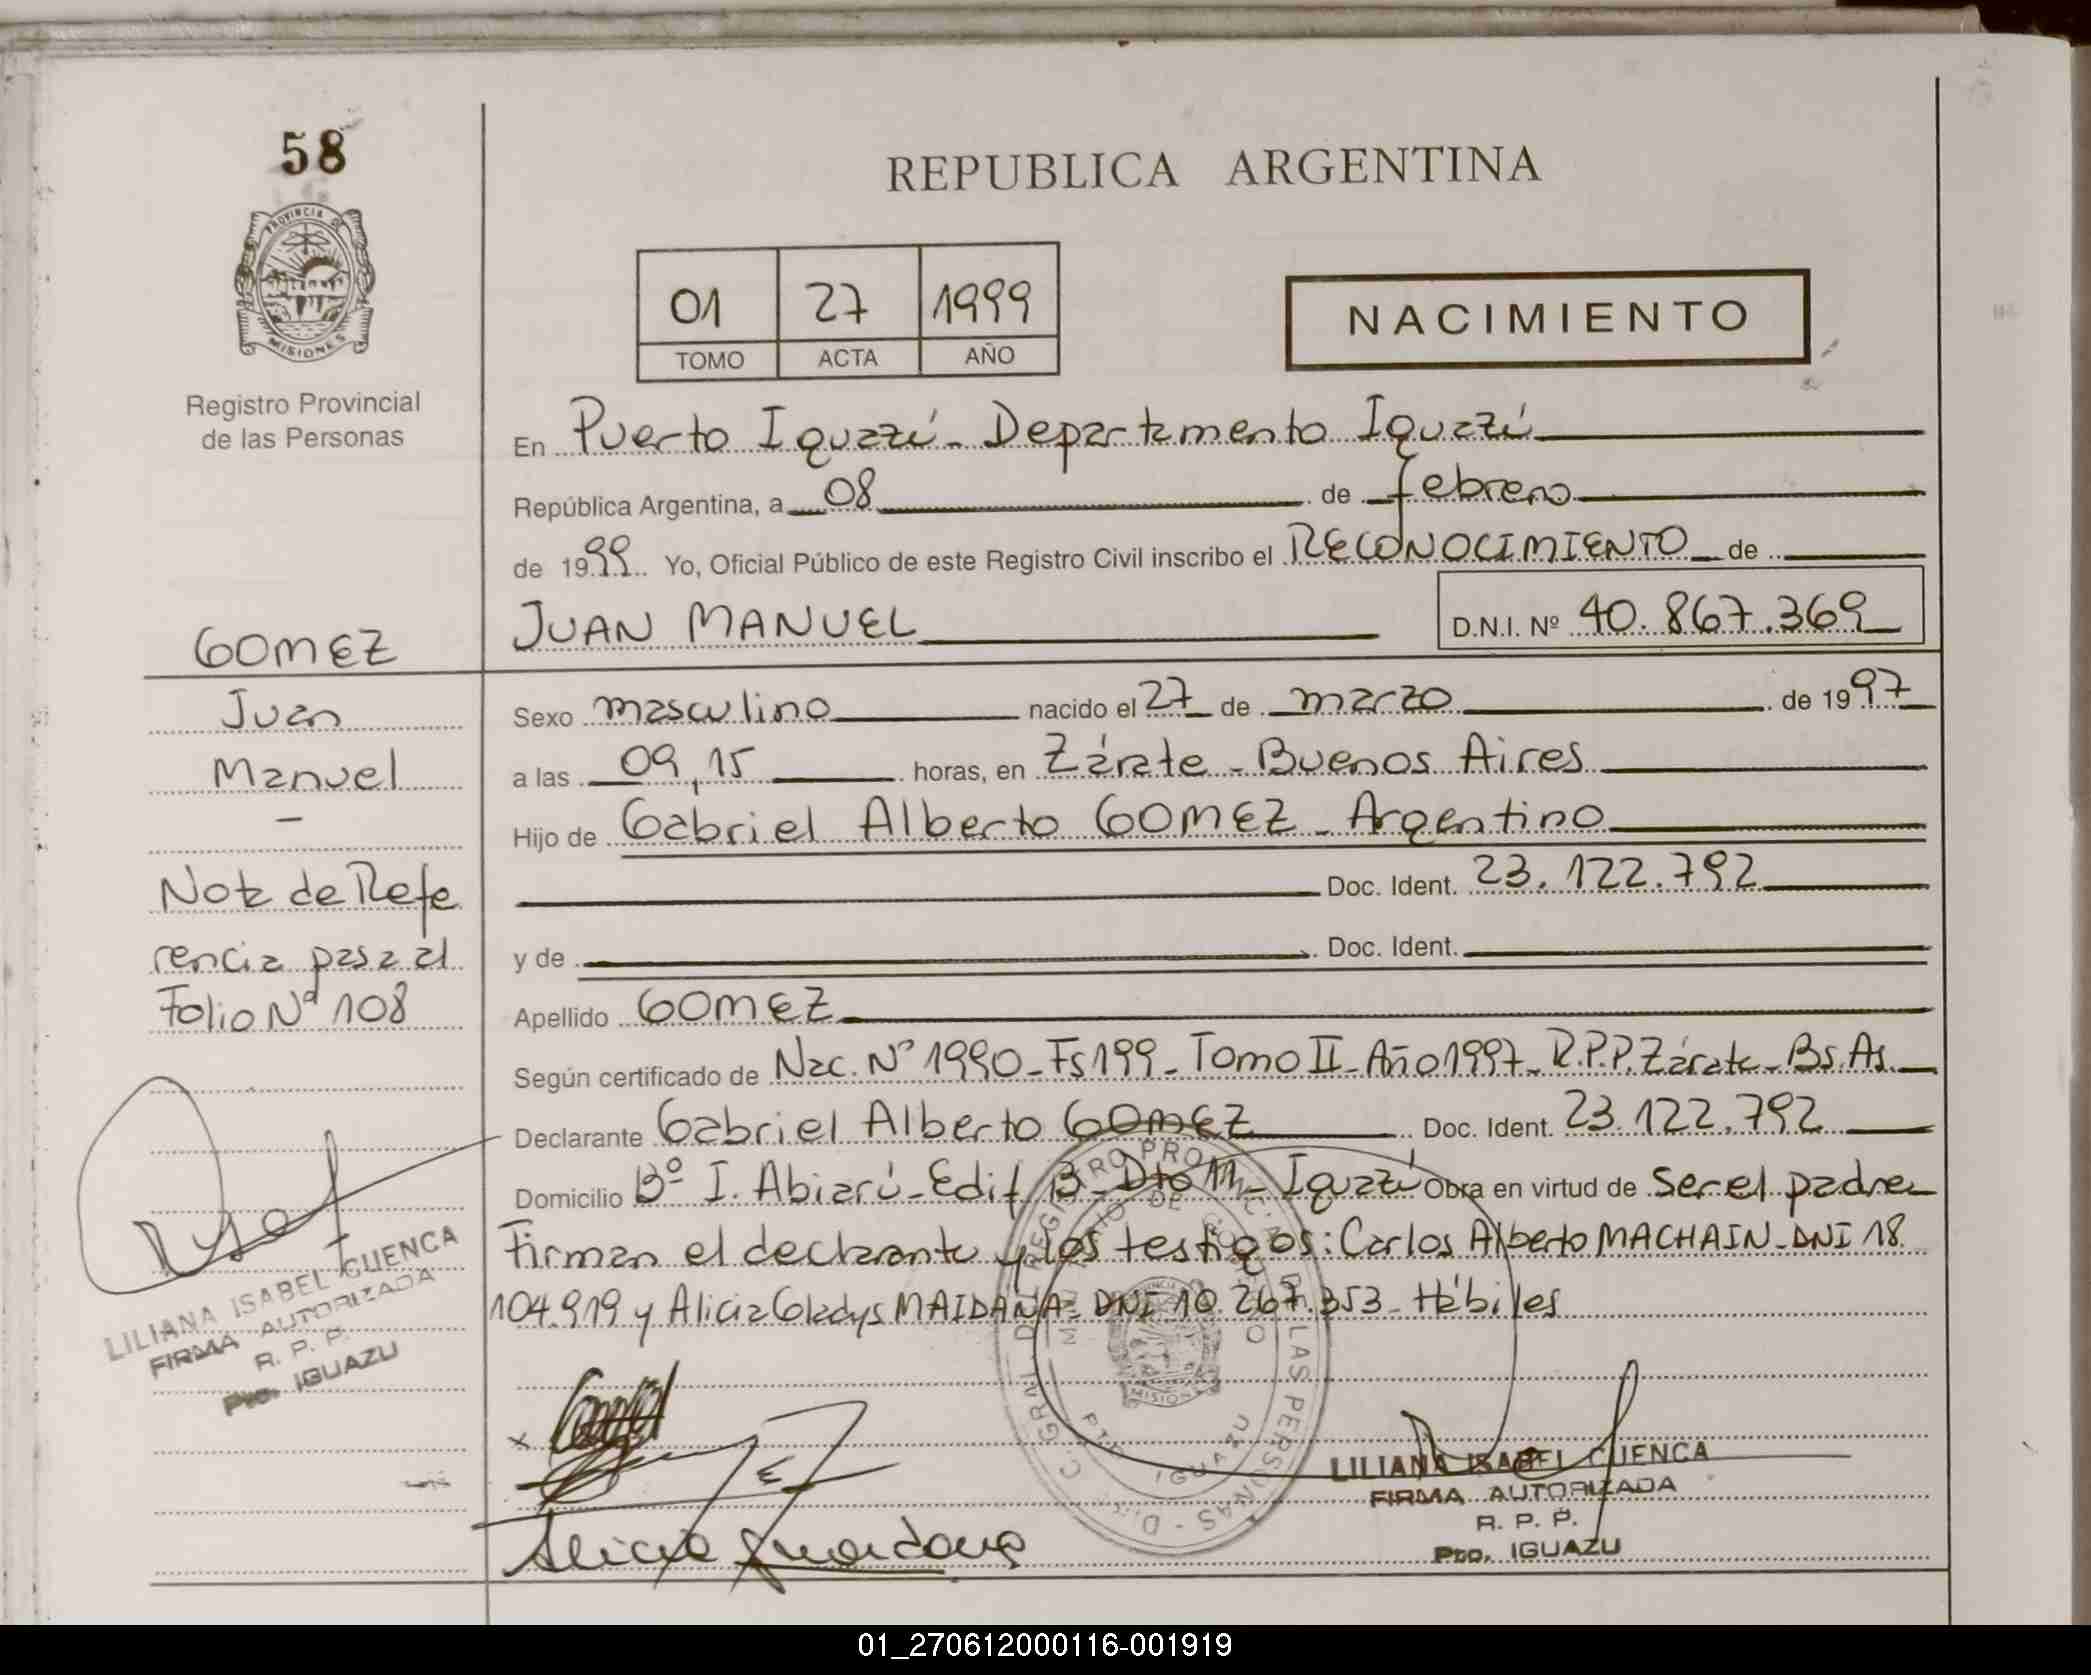 58
PROVINCIA DE
MISIONES
Registro Provincial
de las Personas
REPUBLICA ARGENTINA
01 27 1999
TOMO ACTA AÑO
NACIMIENTO
En Puerto Iguazú - Departamento Iguazú
República Argentina, a 08 de febrero
de 1999 Yo, Oficial Público de este Registro Civil inscribo el RECONOCIMIENTO de
JUAN MANUEL D.N.I. Nº 40.867.369
GOMEZ
Juan
Manuel
-
Nota de Refe
rencia pasa al
Folio Nº 108
LILIANA ISABEL CUENCA
FIRMA AUTORIZADA
R. P. P.
Pto. IGUAZU
Sexo masculino nacido el 27 de marzo de 1997
a las 09,15 horas, en Zárate - Buenos Aires
Hijo de Gabriel Alberto GOMEZ - Argentino
Doc. Ident. 23.122.792
y de Doc. Ident.
Apellido GOMEZ
Según certificado de Nac. Nº 1990 - Fs 199 - Tomo II - Año 1997 - R.P.P. Zárate - Bs. As.
Declarante Gabriel Alberto GOMEZ Doc. Ident. 23.122.792
Domicilio Bº I. Abiarú - Edif B - Dto M - Iguazú Obra en virtud de ser el padre
Firman el declarante y los testigos: Carlos Alberto MACHAIN - DNI 18.
104.919 y Alicia Gladys MAIDANA - DNI 10.267.353 - Hábiles
REGISTRO PROVINCIAL DE LAS PERSONAS
MISIONES
PTO. IGUAZU
LILIANA ISABEL CUENCA
FIRMA AUTORIZADA
R. P. P.
Pto. IGUAZU
01_270612000116-001919